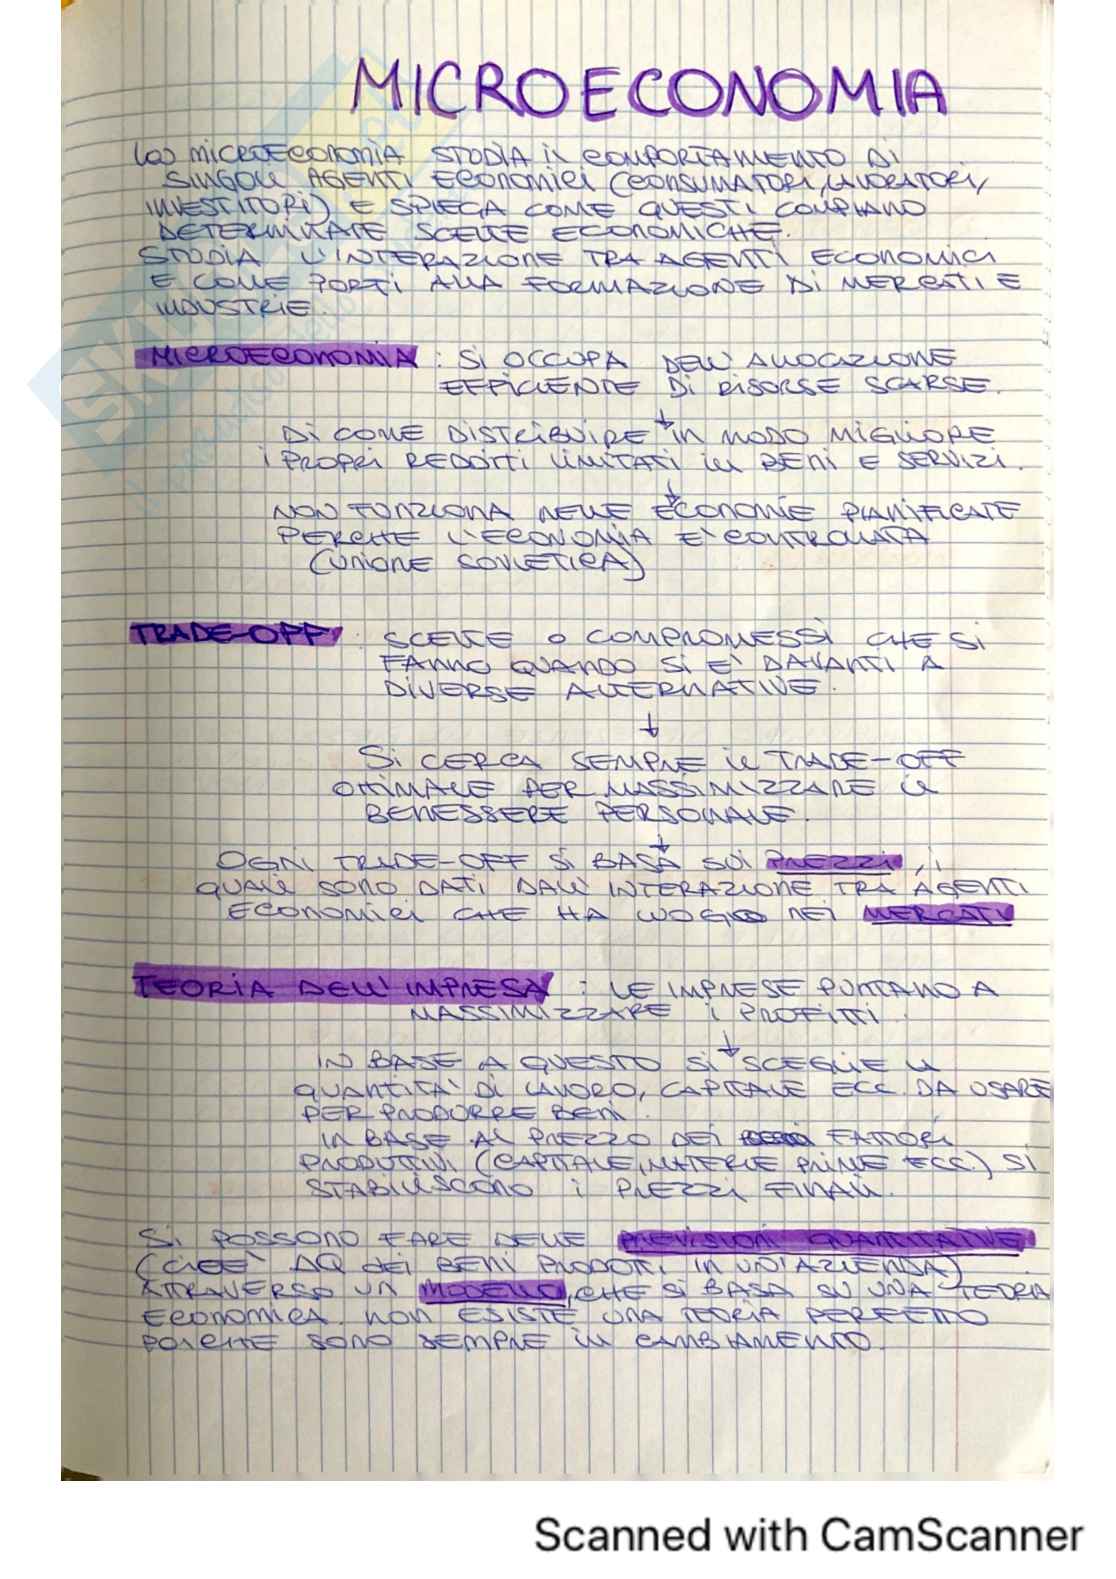 MICROECONOMIA
LA MICROECONOMIA STUDIA IL COMPORTAMENTO DI
SINGOLI AGENTI ECONOMICI (CONSUMATORI, LAVORATORI,
INVESTITORI) E SPIEGA COME QUESTI COMPIANO
DETERMINATE SCELTE ECONOMICHE.
STUDIA L'INTERAZIONE TRA AGENTI ECONOMICI
E COME PORTI ALLA FORMAZIONE DI MERCATI E
INDUSTRIE.
MICROECONOMIA: SI OCCUPA DELL'ALLOCAZIONE
EFFICIENTE DI RISORSE SCARSE.
↓
DI COME DISTRIBUIRE IN MODO MIGLIORE
I PROPRI REDDITI LIMITATI IN BENI E SERVIZI.
↓
NON FUNZIONA NELLE ECONOMIE PIANIFICATE
PERCHE L'ECONOMIA E' CONTROLLATA
(UNIONE SOVIETICA)
TRADE-OFF: SCELTE O COMPROMESSI CHE SI
FANNO QUANDO SI E' DAVANTI A
DIVERSE ALTERNATIVE.
↓
SI CERCA SEMPRE IL TRADE-OFF
OTTIMALE PER MASSIMIZZARE IL
BENESSERE PERSONALE.
↓
OGNI TRADE-OFF SI BASA SUI PREZZI, I
QUALI SONO DATI DALL'INTERAZIONE TRA AGENTI
ECONOMICI CHE HA LUOGO NEI MERCATI
TEORIA DELL'IMPRESA: LE IMPRESE PUNTANO A
MASSIMIZZARE I PROFITTI.
↓
IN BASE A QUESTO SI SCEGLIE LA
QUANTITA' DI LAVORO, CAPITALE ECC. DA USARE
PER PRODURRE BENI.
IN BASE AL PREZZO DEI FATTORI
PRODUTTIVI (CAPITALE, MATERIE PRIME ECC.) SI
STABILISCONO I PREZZI FINALI.
SI POSSONO FARE DELLE PREVISIONI QUANTITATIVE
(CIOE' ΔQ DEI BENI PRODOTTI IN UN'AZIENDA)
ATTRAVERSO UN MODELLO, CHE SI BASA SU UNA TEORIA
ECONOMICA. NON ESISTE UNA TEORIA PERFETTO
POICHE SONO SEMPRE IN CAMBIAMENTO.
Scanned with CamScanner